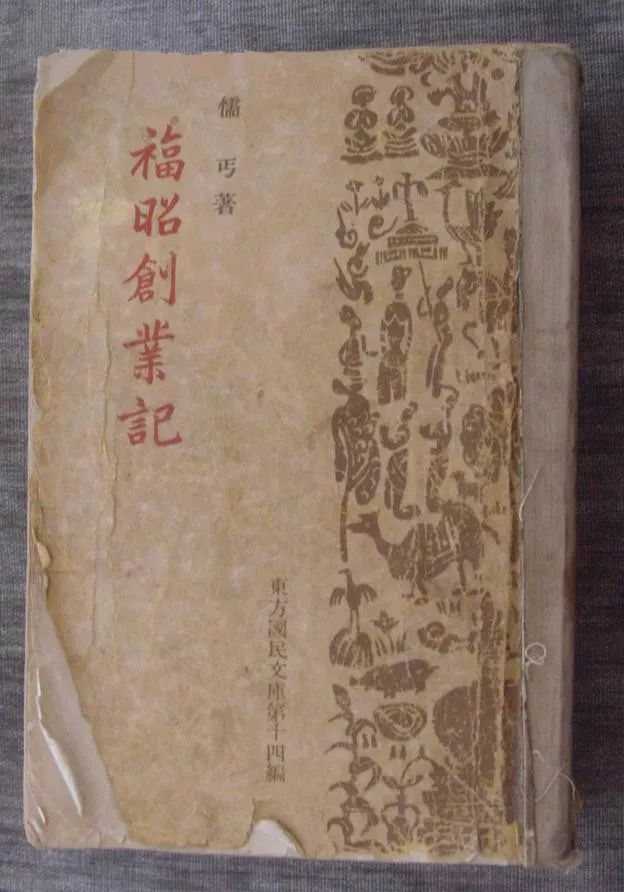 儒丐著
福昭創業記
東方國民文庫第十四編